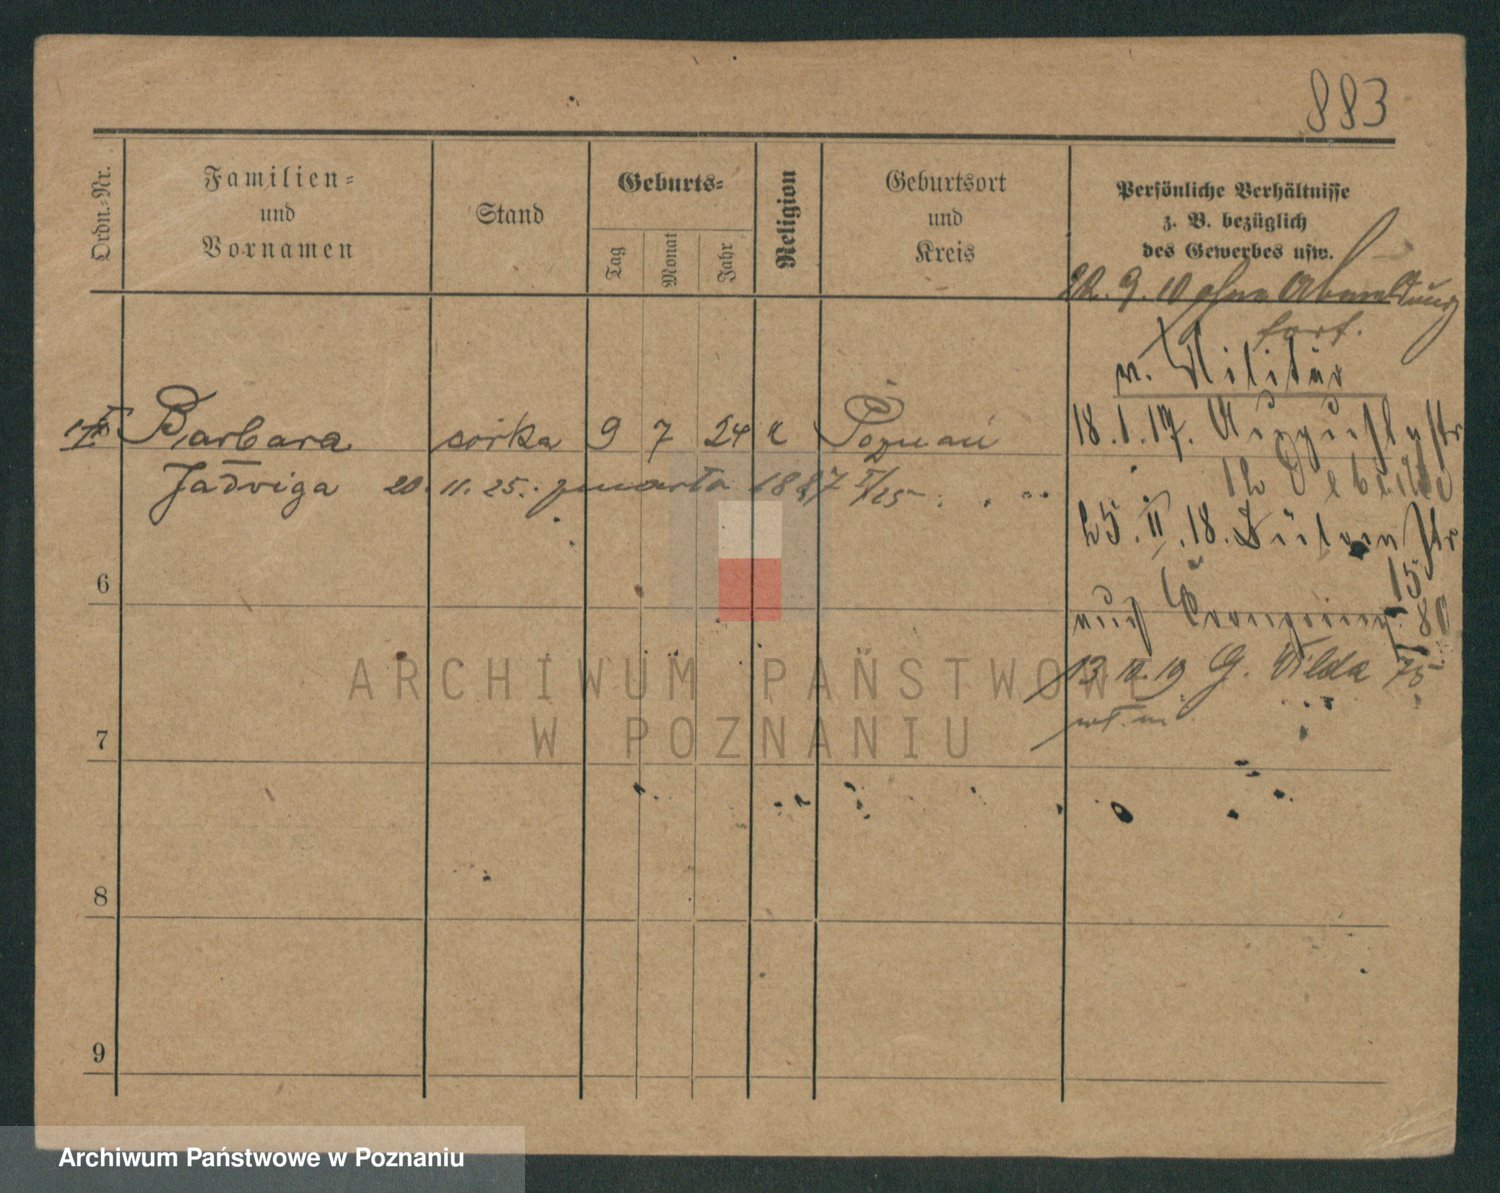 883
Ordn.-Nr.
Familien-
und
Vornamen
Stand
Geburts-
Tag
Monat
Jahr
Religion
Geburtsort
und
Kreis
Persönliche Verhältnisse
z. B. bezüglich
des Gewerbes usw.
22. 9. 10 ohne Abmeldung
fort.
v. Militär
Barbara córka 9 7 24 Poznań
18.1.17. Augusta str
Jadviga 20. 11. 25. zmarła 1887
25. II. 18.
15
6
auch 80
13. 10. 19 G. Wilda 75
ARCHIWUM PAŃSTWOWE
W POZNANIU
7
8
9
Archiwum Państwowe w Poznaniu